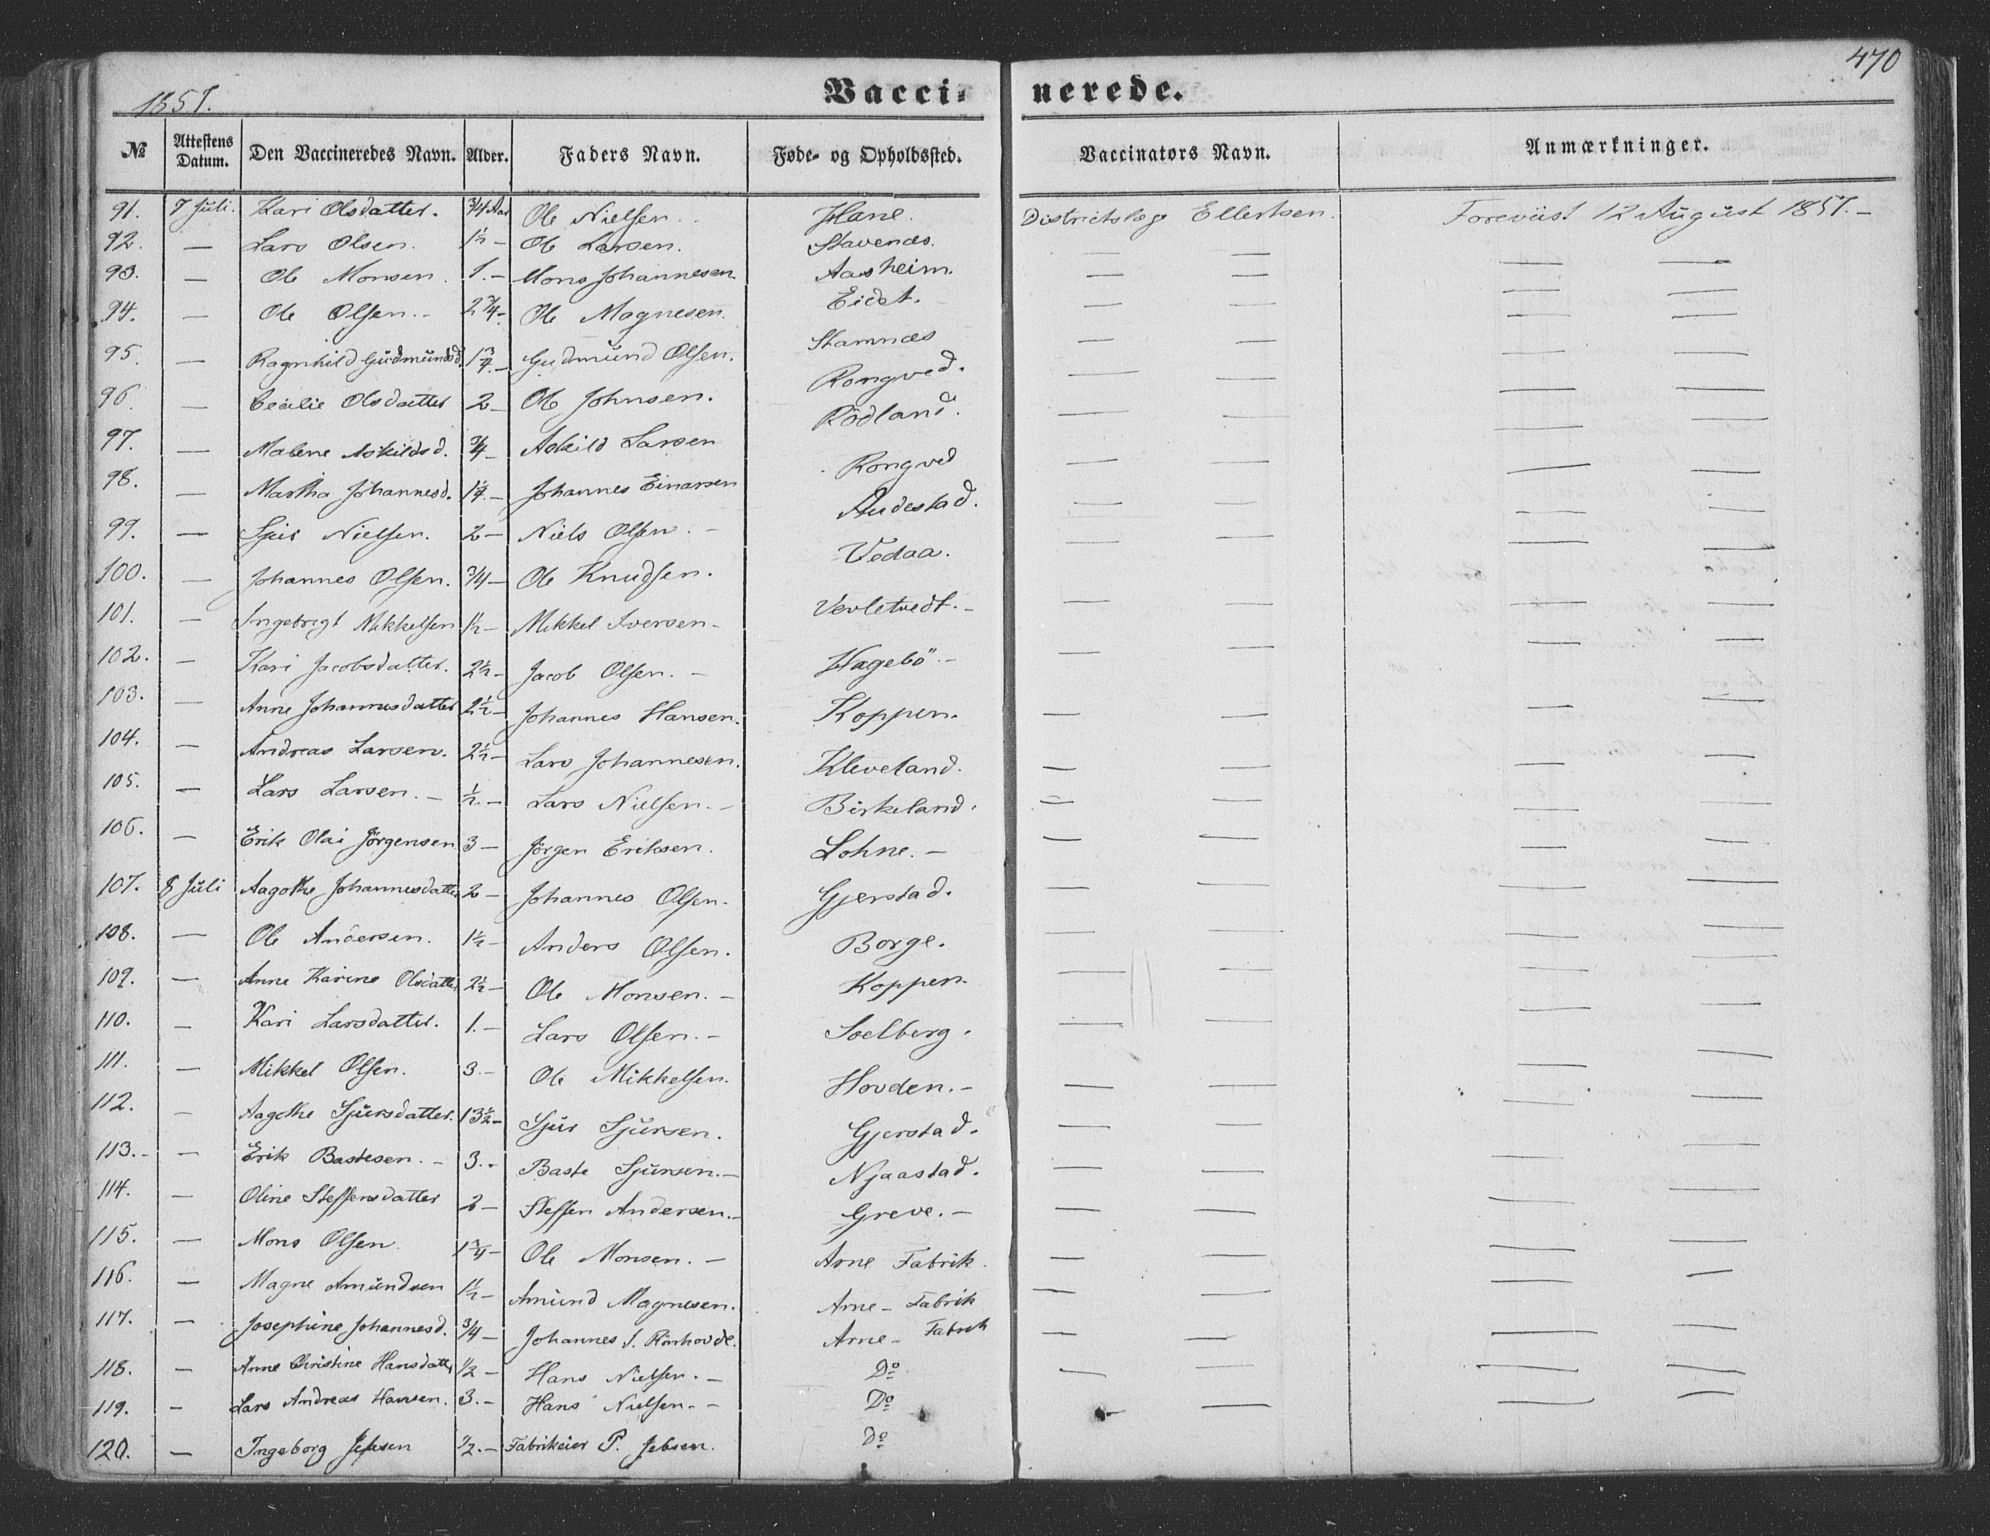 470
1857.
Vaccinerede.
№ Attestens Datum. Den Vaccineredes Navn. Alder. Faders Navn. Føde- og Opholdssted. Vaccinators Navn. Anmærkninger.
91. 7 Juli. Kari Olsdatter. 3/4 Aar Ole Nielsen. Hane. Districtslæge Ellertsen. Foreviist 12 August 1857.-
92. — Lars Olsen. 1½ - Ole Larsen. Stavenæs. — — — —
93. — Ole Monsen. 1.- Mons Johannesen Aasheim. — — — —
94. — Ole Olsen.- 2¾- Ole Magnesen. Eidet. — — — —
95. — Ragnhild Gudmundsd. 1¾- Gudmund Olsen. Stamnæs — — — —
96. — Cecilie Olsdatter 2- Ole Johnsen. Rongved. — — — —
97. — Malene Askildsd. ¾- Askild Larsen Rödland. — — — —
98. — Martha Johannesd. 1¼- Johannes Einarsen Rongved — — — —
99. — Sjur Nielsen. 2- Niels Olsen.- Audestad. — — — —
100. — Johannes Olsen. ¾- Ole Knudsen. Vedaa. — — — —
101. — Ingebrigt Mikkelsen 1½- Mikkel Iversen- Vevletvedt.- — — — —
102. — Kari Jacobsdatter. 2½- Jacob Olsen.- Hagebö.- — — — —
103. — Anne Johannesdatter 2½- Johannes Hansen. Koppen. — — — —
104. — Andreas Larsen. 2½- Lars Johannesen. Kleveland. — — — —
105. — Lars Larsen.- ½.- Lars Nielsen.- Birkeland. — — — —
106. — Erik Olai Jörgensen 3- Jörgen Eriksen. Lohne.- — — — —
107. 8 Juli Aagothe Johannesdatter 2- Johannes Olsen. Gjerstad. — — — —
108. — Ole Andersen. 1½- Anders Olsen. Borge. — — — —
109. — Anne Karine Olsdatter 2½- Ole Monsen.- Koppen. — — — —
110. — Kari Larsdatter. 1.- Lars Olsen.- Soelberg. — — — —
111. — Mikkel Olsen. 3.- Ole Mikkelsen. Hovden.- — — — —
112. — Aagothe Sjursdatter. 13½- Sjur Sjursen. Gjerstad. — — — —
113.- — Erik Bastesen.- 3.- Baste Sjursen.- Njaastad. — — — —
114. — Oline Steffensdatter 2- Steffen Andersen.- Greve.- — — — —
115. — Mons Olsen. 1¾- Ole Monsen.- Arne Fabrik. — — — —
116. — Magne Amundsen 1½- Amund Magnesen. Arne- Fabrik — — — —
117. — Josephine Johannesd. ¾- Johannes J. Rimhovde. Arne- Fabrik — — — —
118. — Anne Christine Hansdatter ½- Hans Nielsen.- Do — — — —
119. — Lars Andreas Hansen. 3.- Hans Nielsen.- Do — — — —
120. — Ingeborg Jebsen ½.- Fabrikeier P. Jebsen. Do